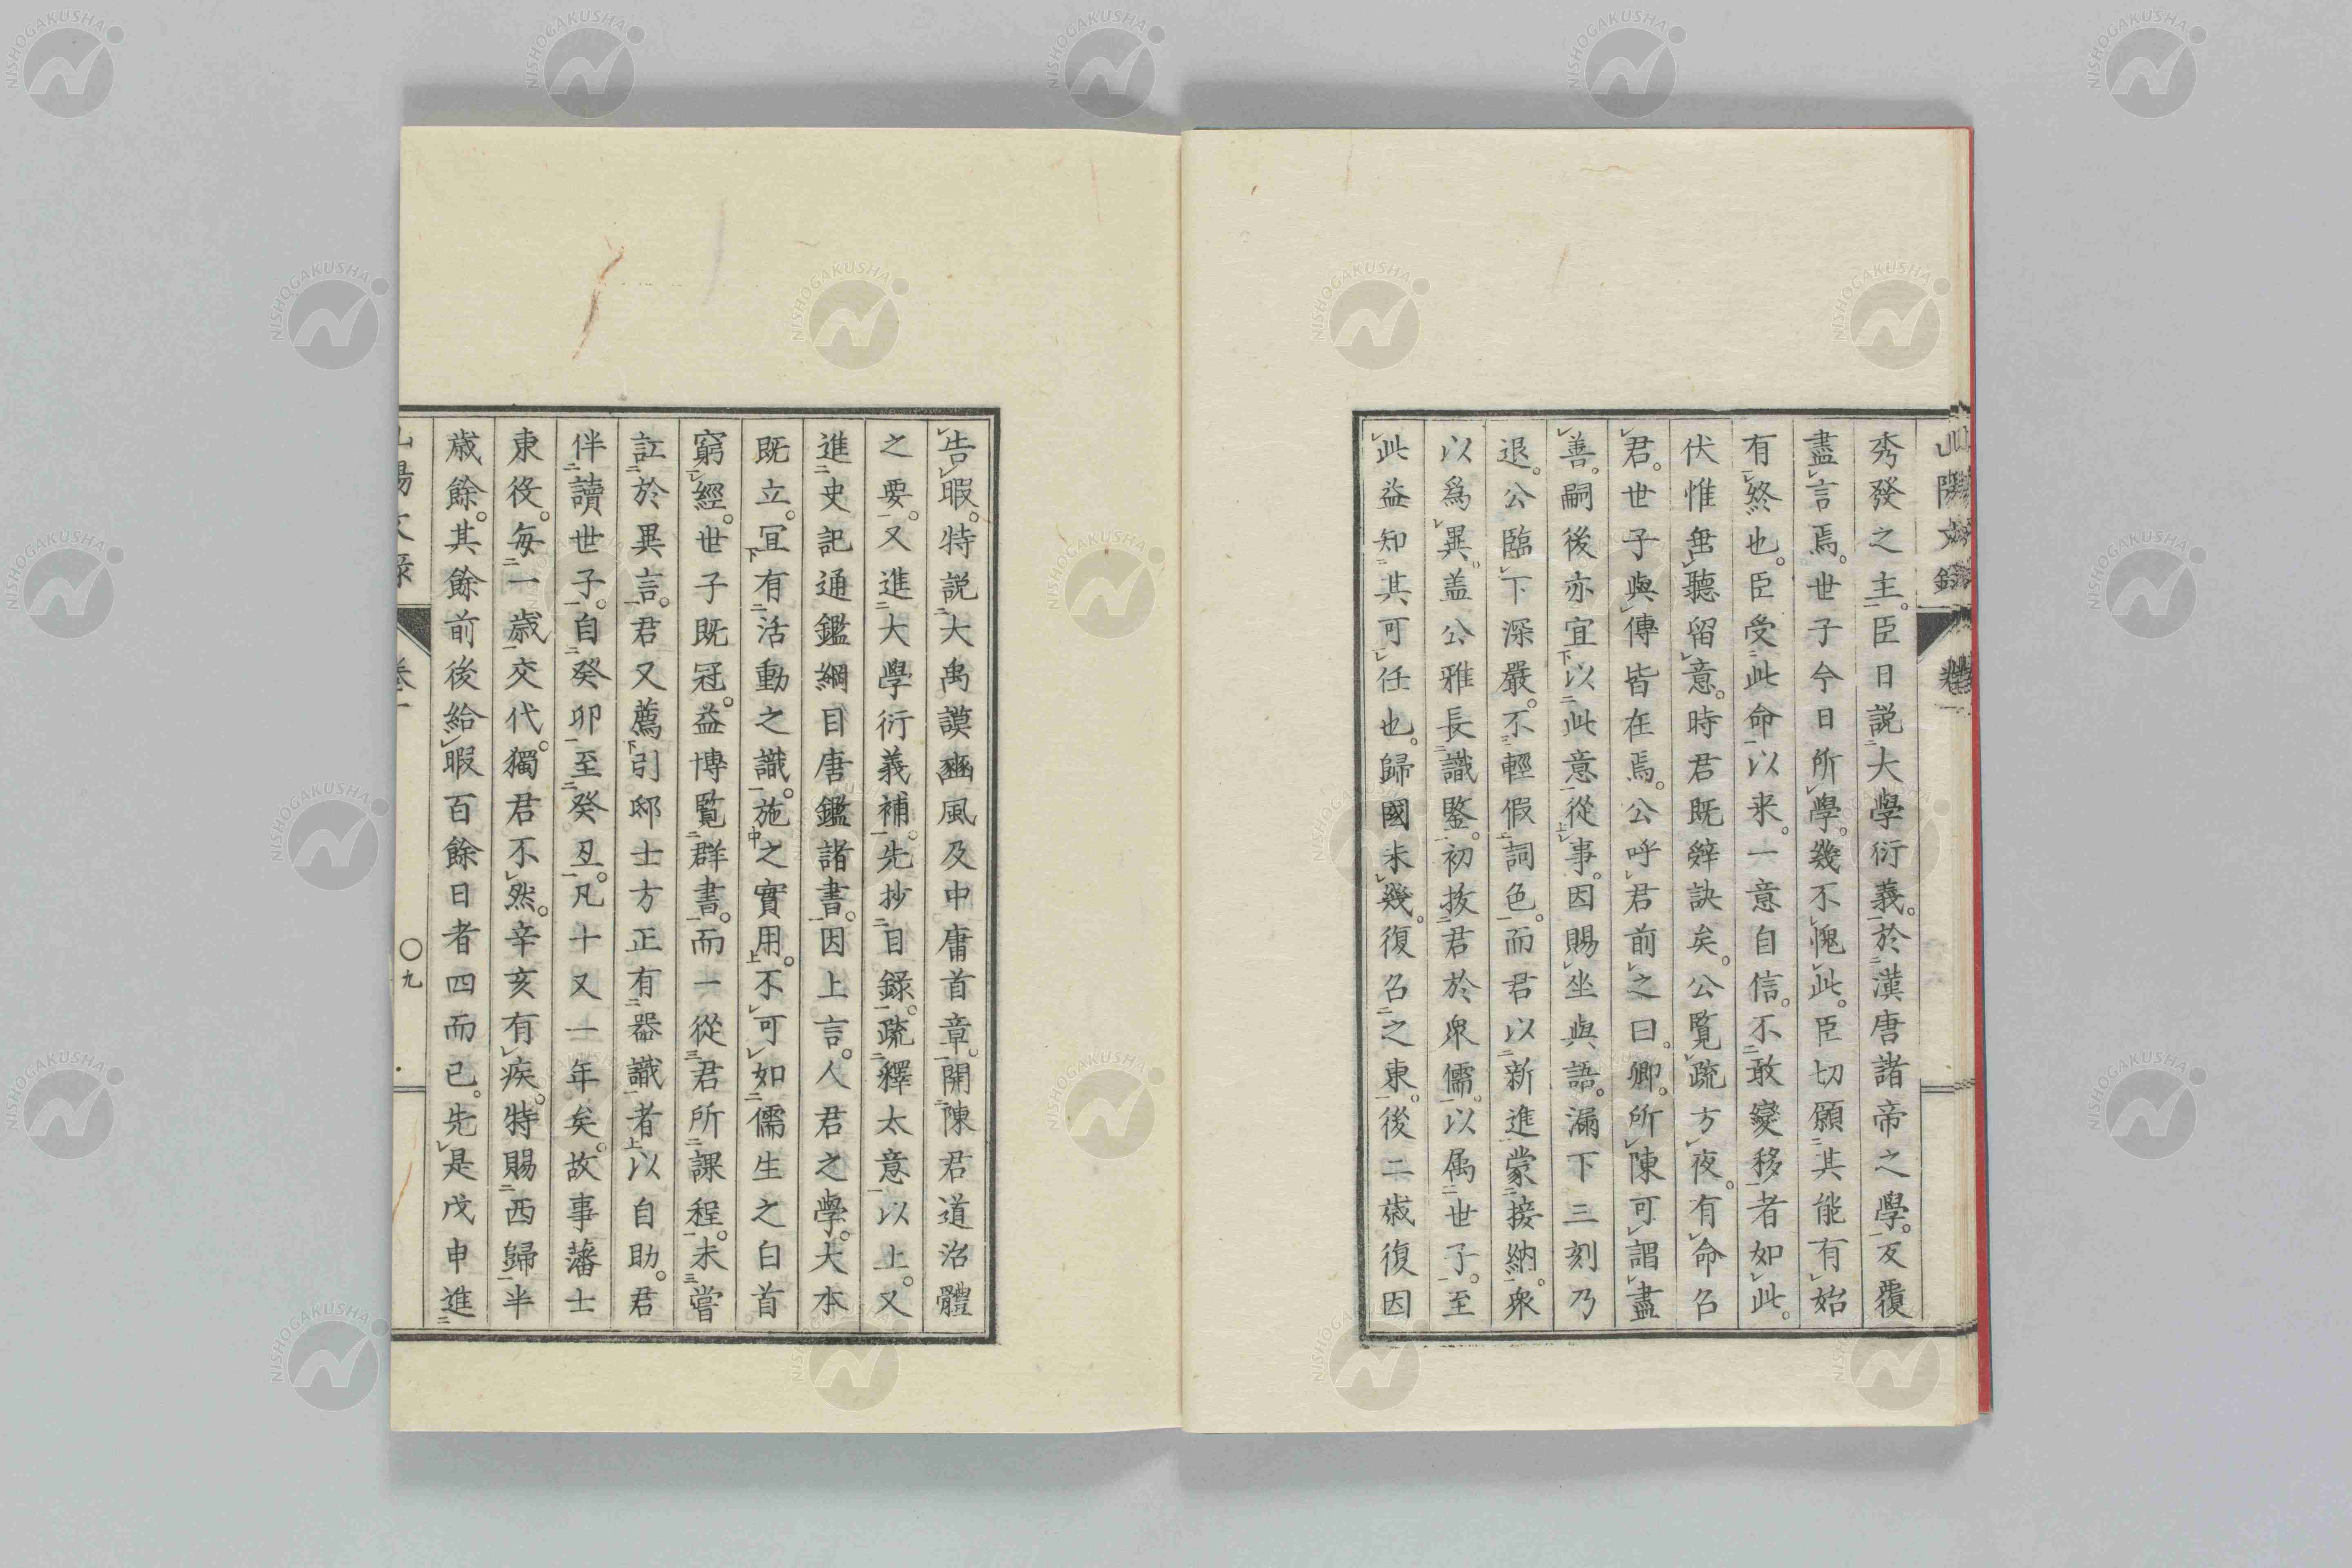 秀發之主。臣日説大學衍義。於漢唐諸帝之學。反覆
盡言焉。世子今日所學。幾不愧此。臣切願其能有始
有終也。臣受此命以来。一意自信。不敢變移者如此。
伏惟垂聽留意。時君既辤訣矣。公覧疏方夜。有命召
君。世子與傳皆在焉。公呼君前之曰。卿所陳可謂盡
善。嗣後亦宜以此意從事。因賜坐與語。漏下三刻乃
退。公臨下深嚴。不輕假詞色。而君以新進蒙接納。衆
以爲異。盖公雅長識鑒。初抜君於衆儒。以属世子。至
此益知其可任也。歸國未幾。復召之東。後二歳復因
告暇。特説大禹謨豳風及中庸首章。開陳君道治體
之要。又進大學衍義補。先抄目録。疏釋太意以上。又
進史記通鑑綱目唐鑑諸書。因上言。人君之學。大本
既立。冝有活動之識。施之實用。不可如儒生之白首
窮經。世子既冠。益博覧群書。而一從君所課程。未嘗
訌於異言。君又薦引邸士方正有器識者以自助。君
伴讀世子。自癸卯至癸丑。凡十又一年矣。故事藩士
東役。毎一歳交代。獨君不然。辛亥有疾。特賜西歸半
歳餘。其餘前後給暇百餘日者四而已。先是戊申進
山陽文録
卷一
〇九